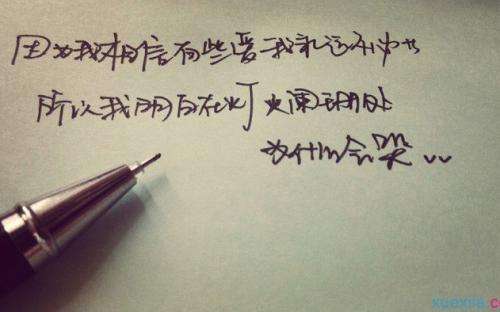 因为我相信有些爱我永远不
所以我明白在灯火阑珊处
为什么会哭..
xuexila.c